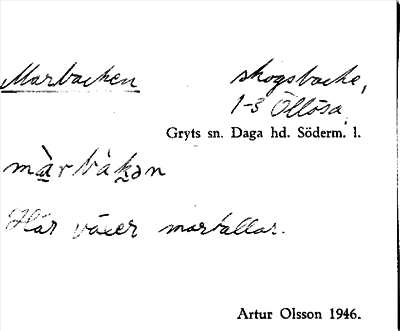 Marbacken skogsbacke,
1-3 Öllösa
Gryts sn. Daga hd. Söderm. l.
màrbàkən
Här växer martallar.
Artur Olsson 1946.